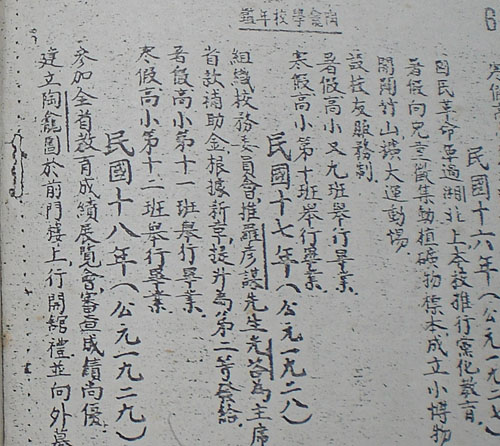 陶龕學校年鑑
6
寒假
民國十六年（公元一九二七）
國民革命軍過湖北上本校推行黨化教育
暑假向兒童徵集動植礦物標本成立小博物
開闢竹山擴大運動場
設校友服務
暑假高小又九班舉行畢業
寒假高小第十班舉行畢業
民國十七年（公元一九二八）
組織校務委員會推羅彥謀先生為主席
省款補助金根據新章提升為第二等發給
暑假高小第十一班舉行畢業
寒假高小第十二班舉行畢業
民國十八年（公元一九二九）
參加全省教育成績展覽會審查成績尚優
建立陶龕圖於前門樓上行開館禮並向外募